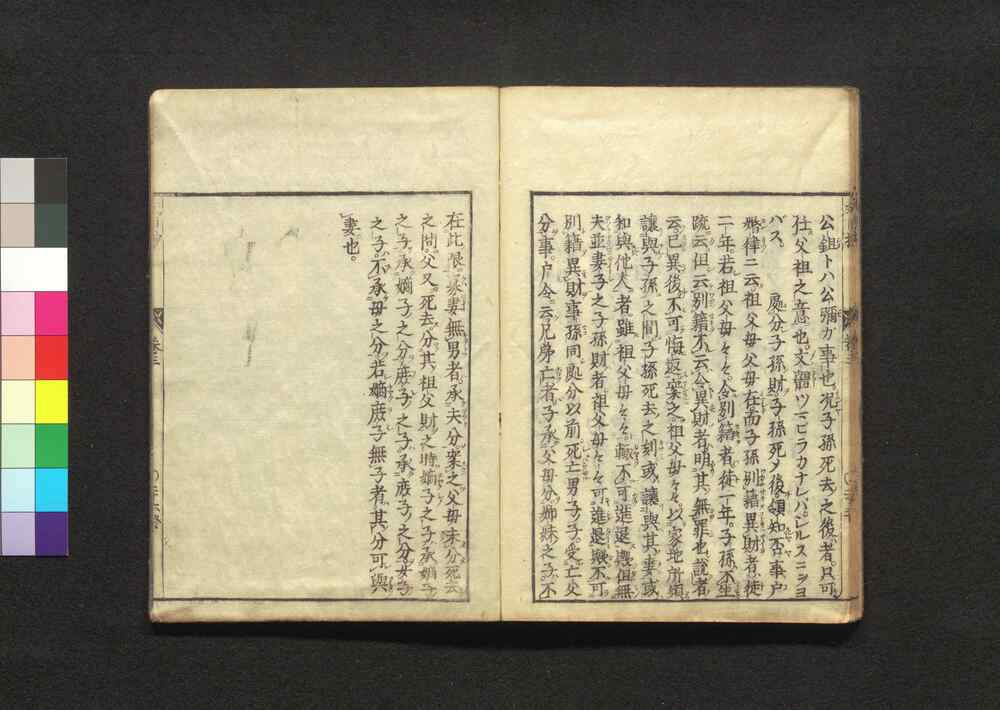 公錐トハ公彌カ事也况子孫死去之後者只可
任父祖之意也文體ツマビラカナレバシルスニヲヨ
バス 處分子孫財子孫死メ後領知否事戸
婚律ニ云祖父母父母在而子孫別籍異財者徒
二年若祖父母々々令別籍者徒一年子孫不坐
疏云但云別籍不云令異財者明其無罪也說者
云已異後不可悔返案之祖父母々々以家地所領
讓與子孫之間子孫死去之刻或讓與其妻或
和與他人者雖祖父母々々輙不可進退歟但無
夫並妻子之子孫財者祖父母々々可進退歟不可
別籍異財事孫同處分以前死亡男子子受亡父
分事戸令云兄弟亡者子承父母分姉妹之子不
在此限 妻無男者承夫分案之父母未分死去
之間父又死去分其祖父財之時嫡子之子承嫡子
之子承嫡子之分庶子之子承庶子之分女子
之子不承母之分若嫡庶子無子者其分可與
妻也。
卷三